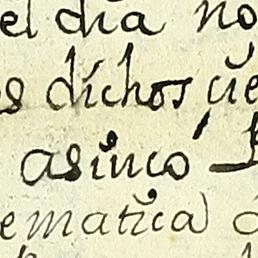 el dia no
s dichos cie
asinco
ematica